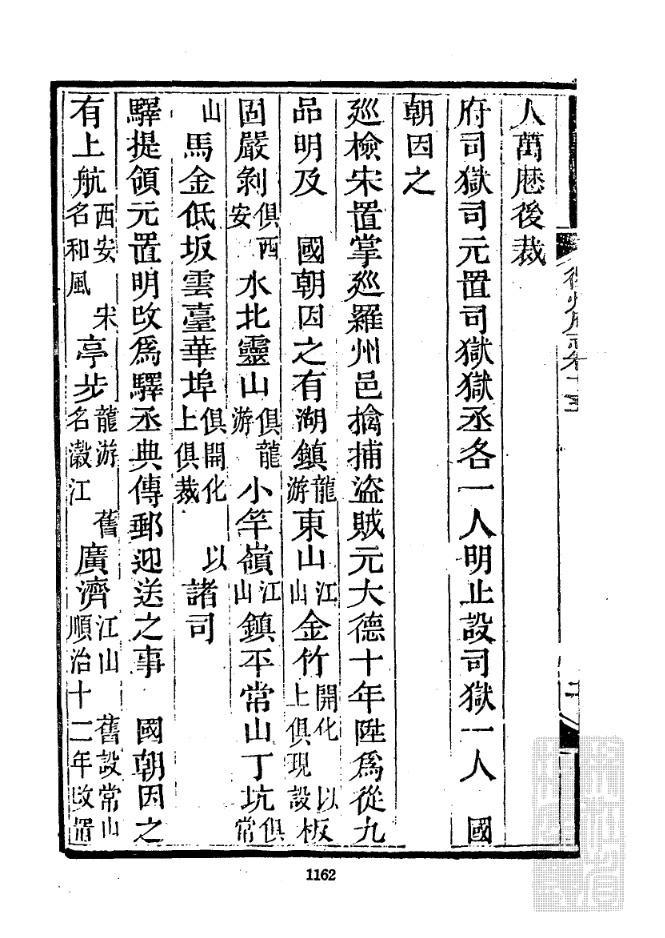 人萬厯後裁
府司獄司元置司獄獄丞各一人明止設司獄一人　國
朝因之
廵檢宋置掌廵羅州邑擒捕盜賊元大德十年陞爲從九
品明及　國朝因之有湖鎮龍游東山江山金竹開化　以上俱現設板
固嚴剝俱西安水北靈山俱龍游小竿嶺江山鎮平常山丁坑俱常
山馬金低坂雲臺華埠俱開化　以上俱裁諸司
驛提領元置明改爲驛丞典傳郵迎送之事　國朝因之
有上航西安　宋名和風亭步龍游　舊名瀔江廣濟江山　舊設常山順治十二年改置
1162